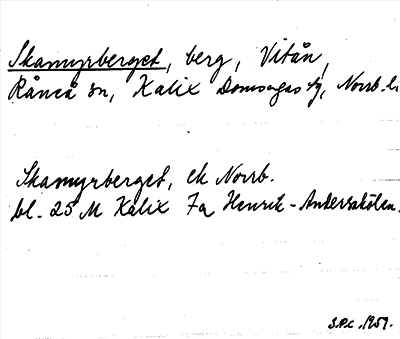 Skamyrberget, berg, Vitån,
Råneå sn, Kalix Domsagas tg, Norrb. l.
Skamyrberget, ek Norrb.
bl. 25 M Kalix Fa Henrik-Anderssköten.
S.P.C. 1959.